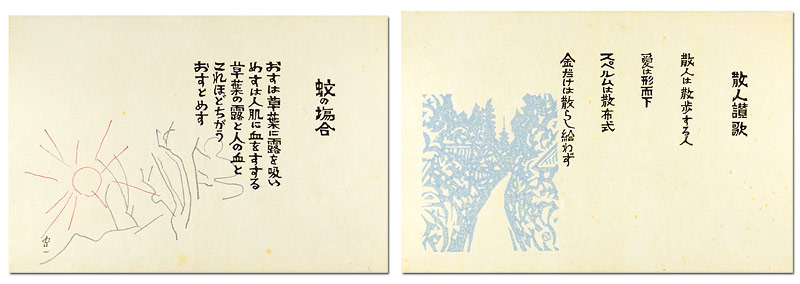 蚊の場合
おすは草葉に露を吸い
めすは人肌に血をすする
草葉の露と人の血と
これほどちがう
おすとめす
散人讃歌
散人は散歩する人
愛は形而下
スペルムは散布式
金だけは散らし給わず